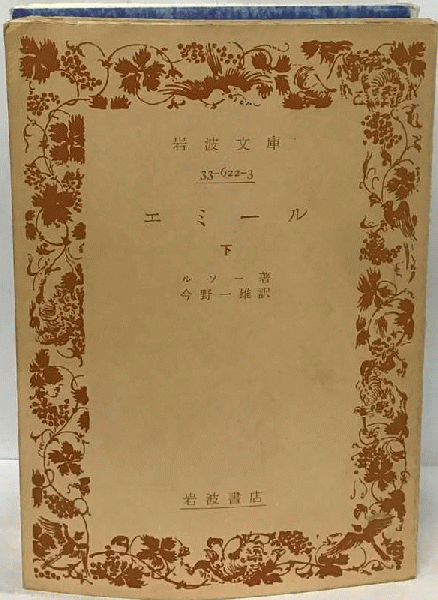 岩波文庫
33-622-3
エミール
下
ルソー著
今野一雄訳
岩波書店